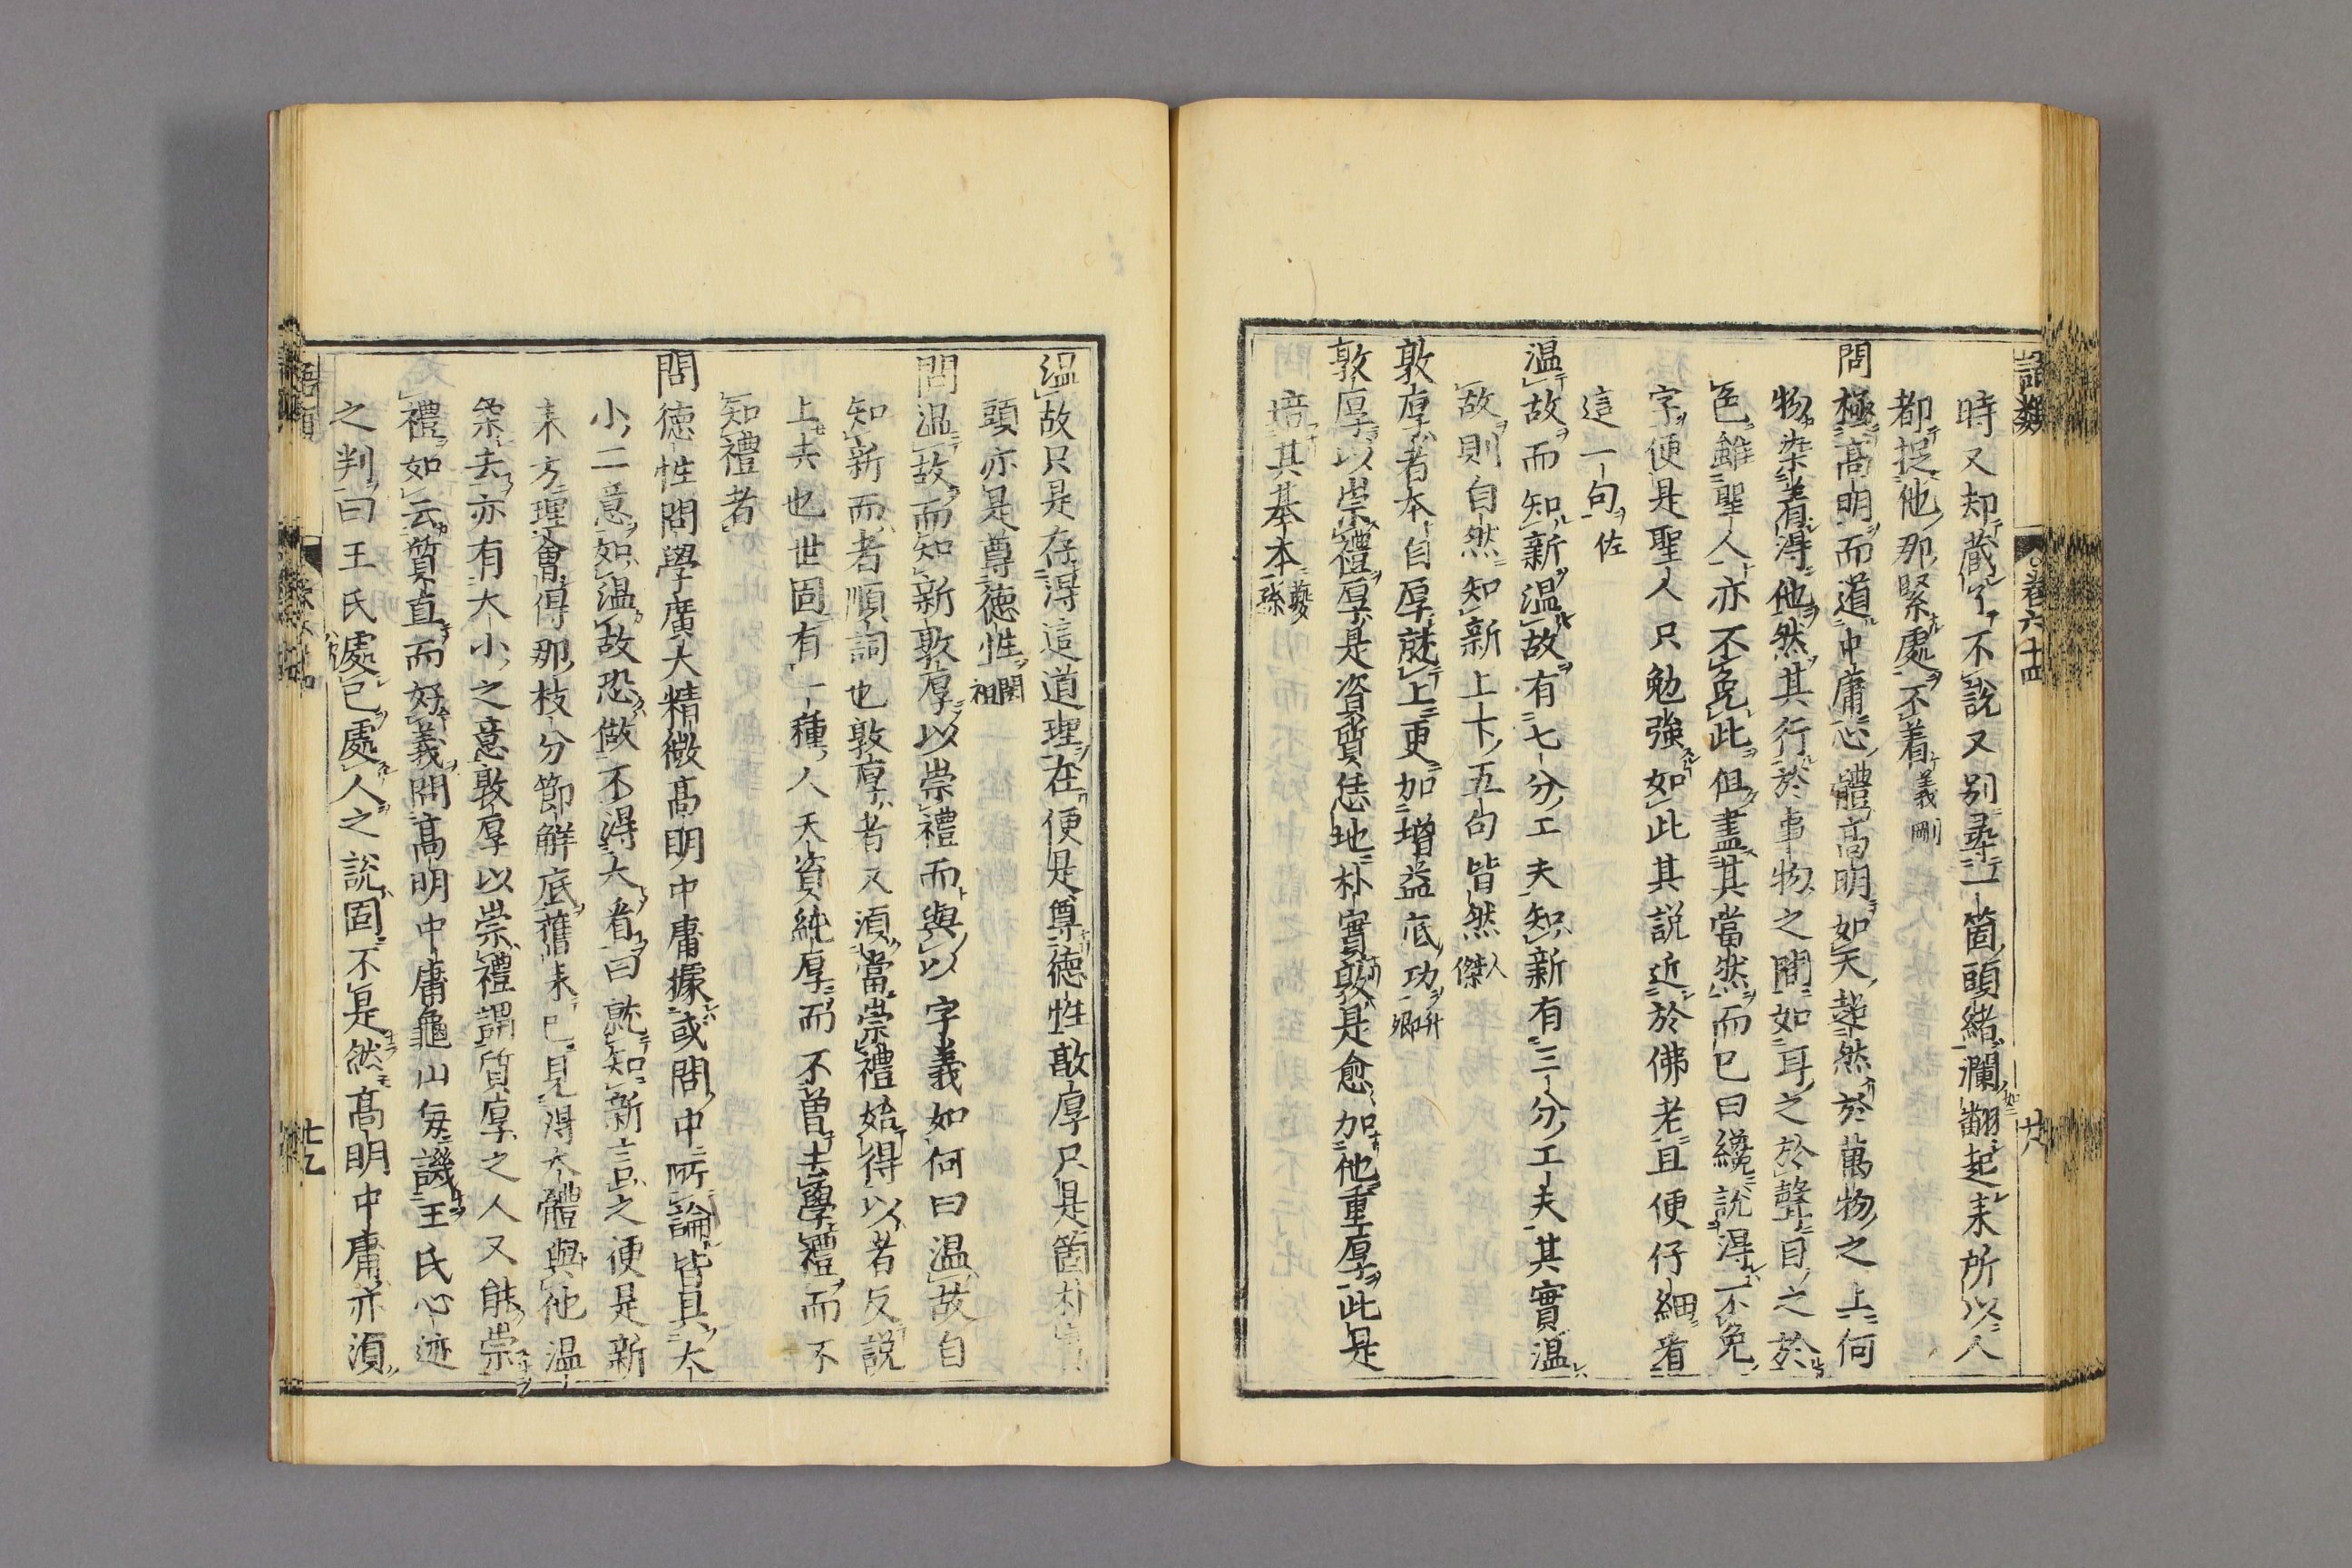 語類
卷六十四
廿八
時又却蔵了不說又別尋一箇頭緒瀾翻起来所以人
都捉他那緊處不着義剛
問極髙明而道中庸心體髙明如天超然於萬物之上何
物染着得他然其行於事物之間如耳之於聲目之於
色雖聖人亦不免此但盡其當然而已曰纔說得不免
字便是聖人只勉強如此其説近於佛老且便仔細看
這一句佐
温故而知新温故有七分工夫知新有三分工夫其實温
故則自然知新上下五句皆然人傑
敦厚者本自厚就上更加增益底功升卿
敦厚以崇禮厚是資質恁地朴實敦是愈加他重厚此是
培其基本夔孫
温故只是存得這道理在便是尊德性敢厚只是箇朴實
頭亦是尊徳性閎祖
問温故而知新敦厚以崇禮而與以字義如何曰温故自
知新而者順詞也敦厚者又湏當崇禮始得以者反説
上去也世固有一種人天資純厚而不曽去學禮而不
知禮者
問徳性問學廣大精微髙明中庸據或問中所論皆具大
小二意如温故恐做不得大看曰就知新言之便是新
来方理會得那枝分節解底舊来已見得大體與他温
㝷去亦有大小之意敦厚以崇禮謂質厚之人又能崇
禮如云質直而好義問髙明中庸龜山每譏王氏心迹
之判曰王氏處己處人之說固不是然髙明中庸亦湏